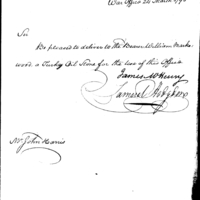 War Office 24 March 179
Sir
Be pleased to deliver to the Bearer William Marks
wood a Turkey Oil Stone for the use of this Office
James McHenry
Samuel Hodgdon
Mr John Harris